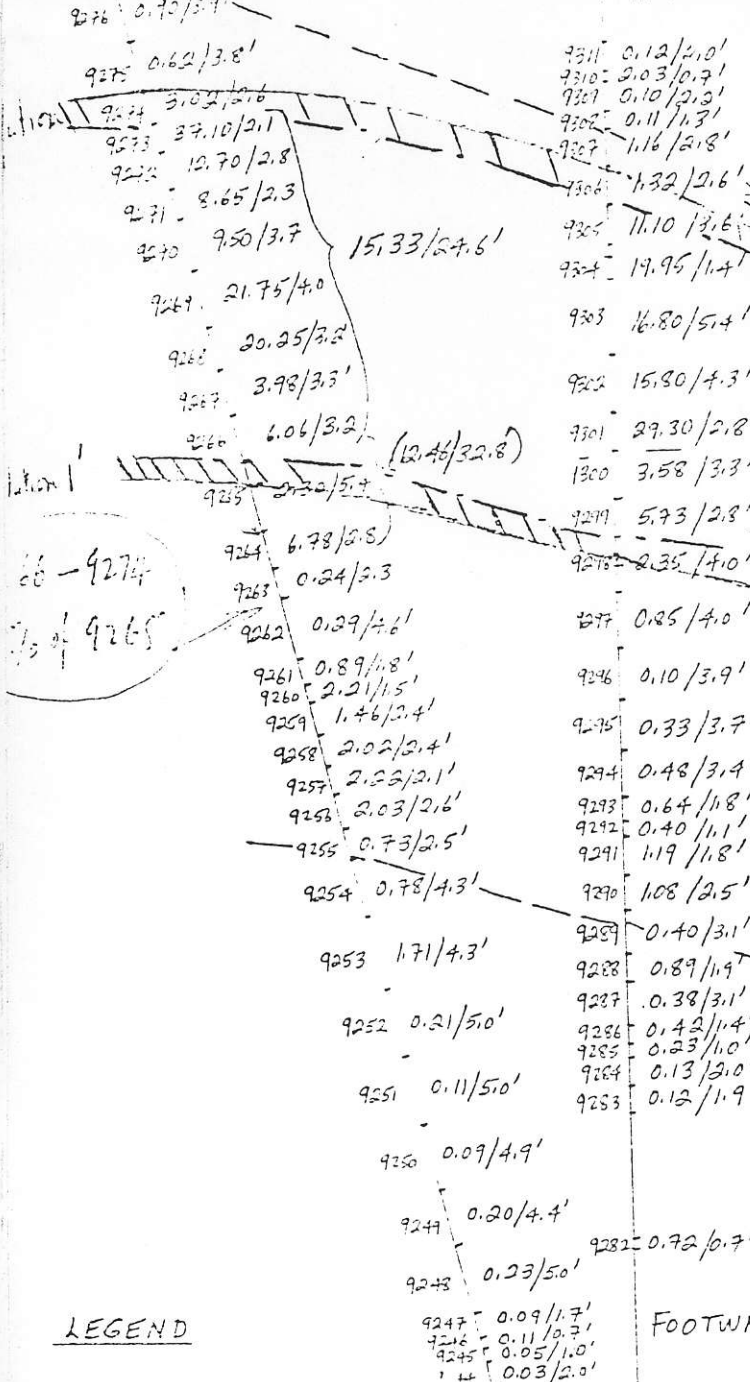 9276 0.90/3.9'
9275 0.62/3.8'
9274 3.02/2.6
9273 37.10/2.1
9272 12.70/2.8
9271 8.65/2.3
9270 9.50/3.7
15.33/24.6'
9269 21.75/4.0
9268 20.25/3.2
9267 3.98/3.3'
9266 6.06/3.2
(12.46/32.8')
9265 2.32/5.4
9264 6.78/2.8
66-9274
% of 9265
9263 0.24/2.3
9262 0.29/4.6'
9261 0.89/1.8'
9260 2.21/1.5'
9259 1.46/2.4'
9258 2.02/2.4'
9257 2.22/2.1'
9256 2.03/2.6'
9255 0.73/2.5'
9254 0.78/4.3'
9253 1.71/4.3'
9252 0.21/5.0'
9251 0.11/5.0'
9250 0.09/4.9'
9249 0.20/4.4'
9248 0.23/5.0'
9247 0.09/1.7'
9246 0.11/0.7'
9245 0.05/1.0'
0.03/2.0'
9311 0.12/2.0'
9310 2.03/0.7'
9309 0.10/2.2'
9308 0.11/1.3'
9307 1.16/2.8'
9306 1.32/2.6'
9305 11.10/3.6'
9304 19.95/1.4'
9303 16.80/5.4'
9302 15.80/4.3'
9301 29.30/2.8
9300 3.58/3.3'
9299 5.73/2.8'
9298 2.35/4.0'
9297 0.85/4.0'
9296 0.10/3.9'
9295 0.33/3.7
9294 0.48/3.4
9293 0.64/1.8'
9292 0.40/1.1'
9291 1.19/1.8'
9290 1.08/2.5'
9289 0.40/3.1'
9288 0.89/1.9'
9287 0.38/3.1'
9286 0.42/1.4'
9285 0.23/1.0'
9284 0.13/2.0
9283 0.12/1.9
9282 0.72/0.7'
LEGEND
FOOTWA